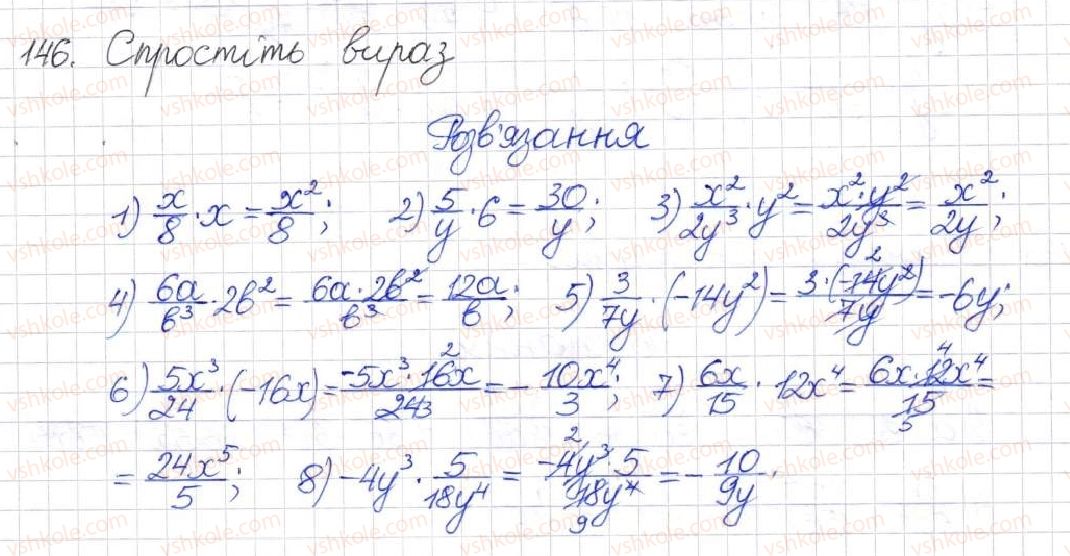 146. Спростіть вираз
Розв'язання
1) x/8 · x = x²/8; 2) 5/y · 6 = 30/y; 3) x²/2y³ · y² = x²·y²/2y³ = x²/2y;
4) 6a/b³ · 2b² = 6a·2b²/b³ = 12a/b; 5) 3/7y · (-14y²) = 3·(-14y²)/7y = -6y;
6) 5x³/24 · (-16x) = -5x³·16x/24 = -10x⁴/3; 7) 6x/15 · 12x⁴ = 6x·12x⁴/15 =
= 24x⁵/5; 8) -4y³ · 5/18y⁴ = -4y³·5/18y⁴ = -10/9y.